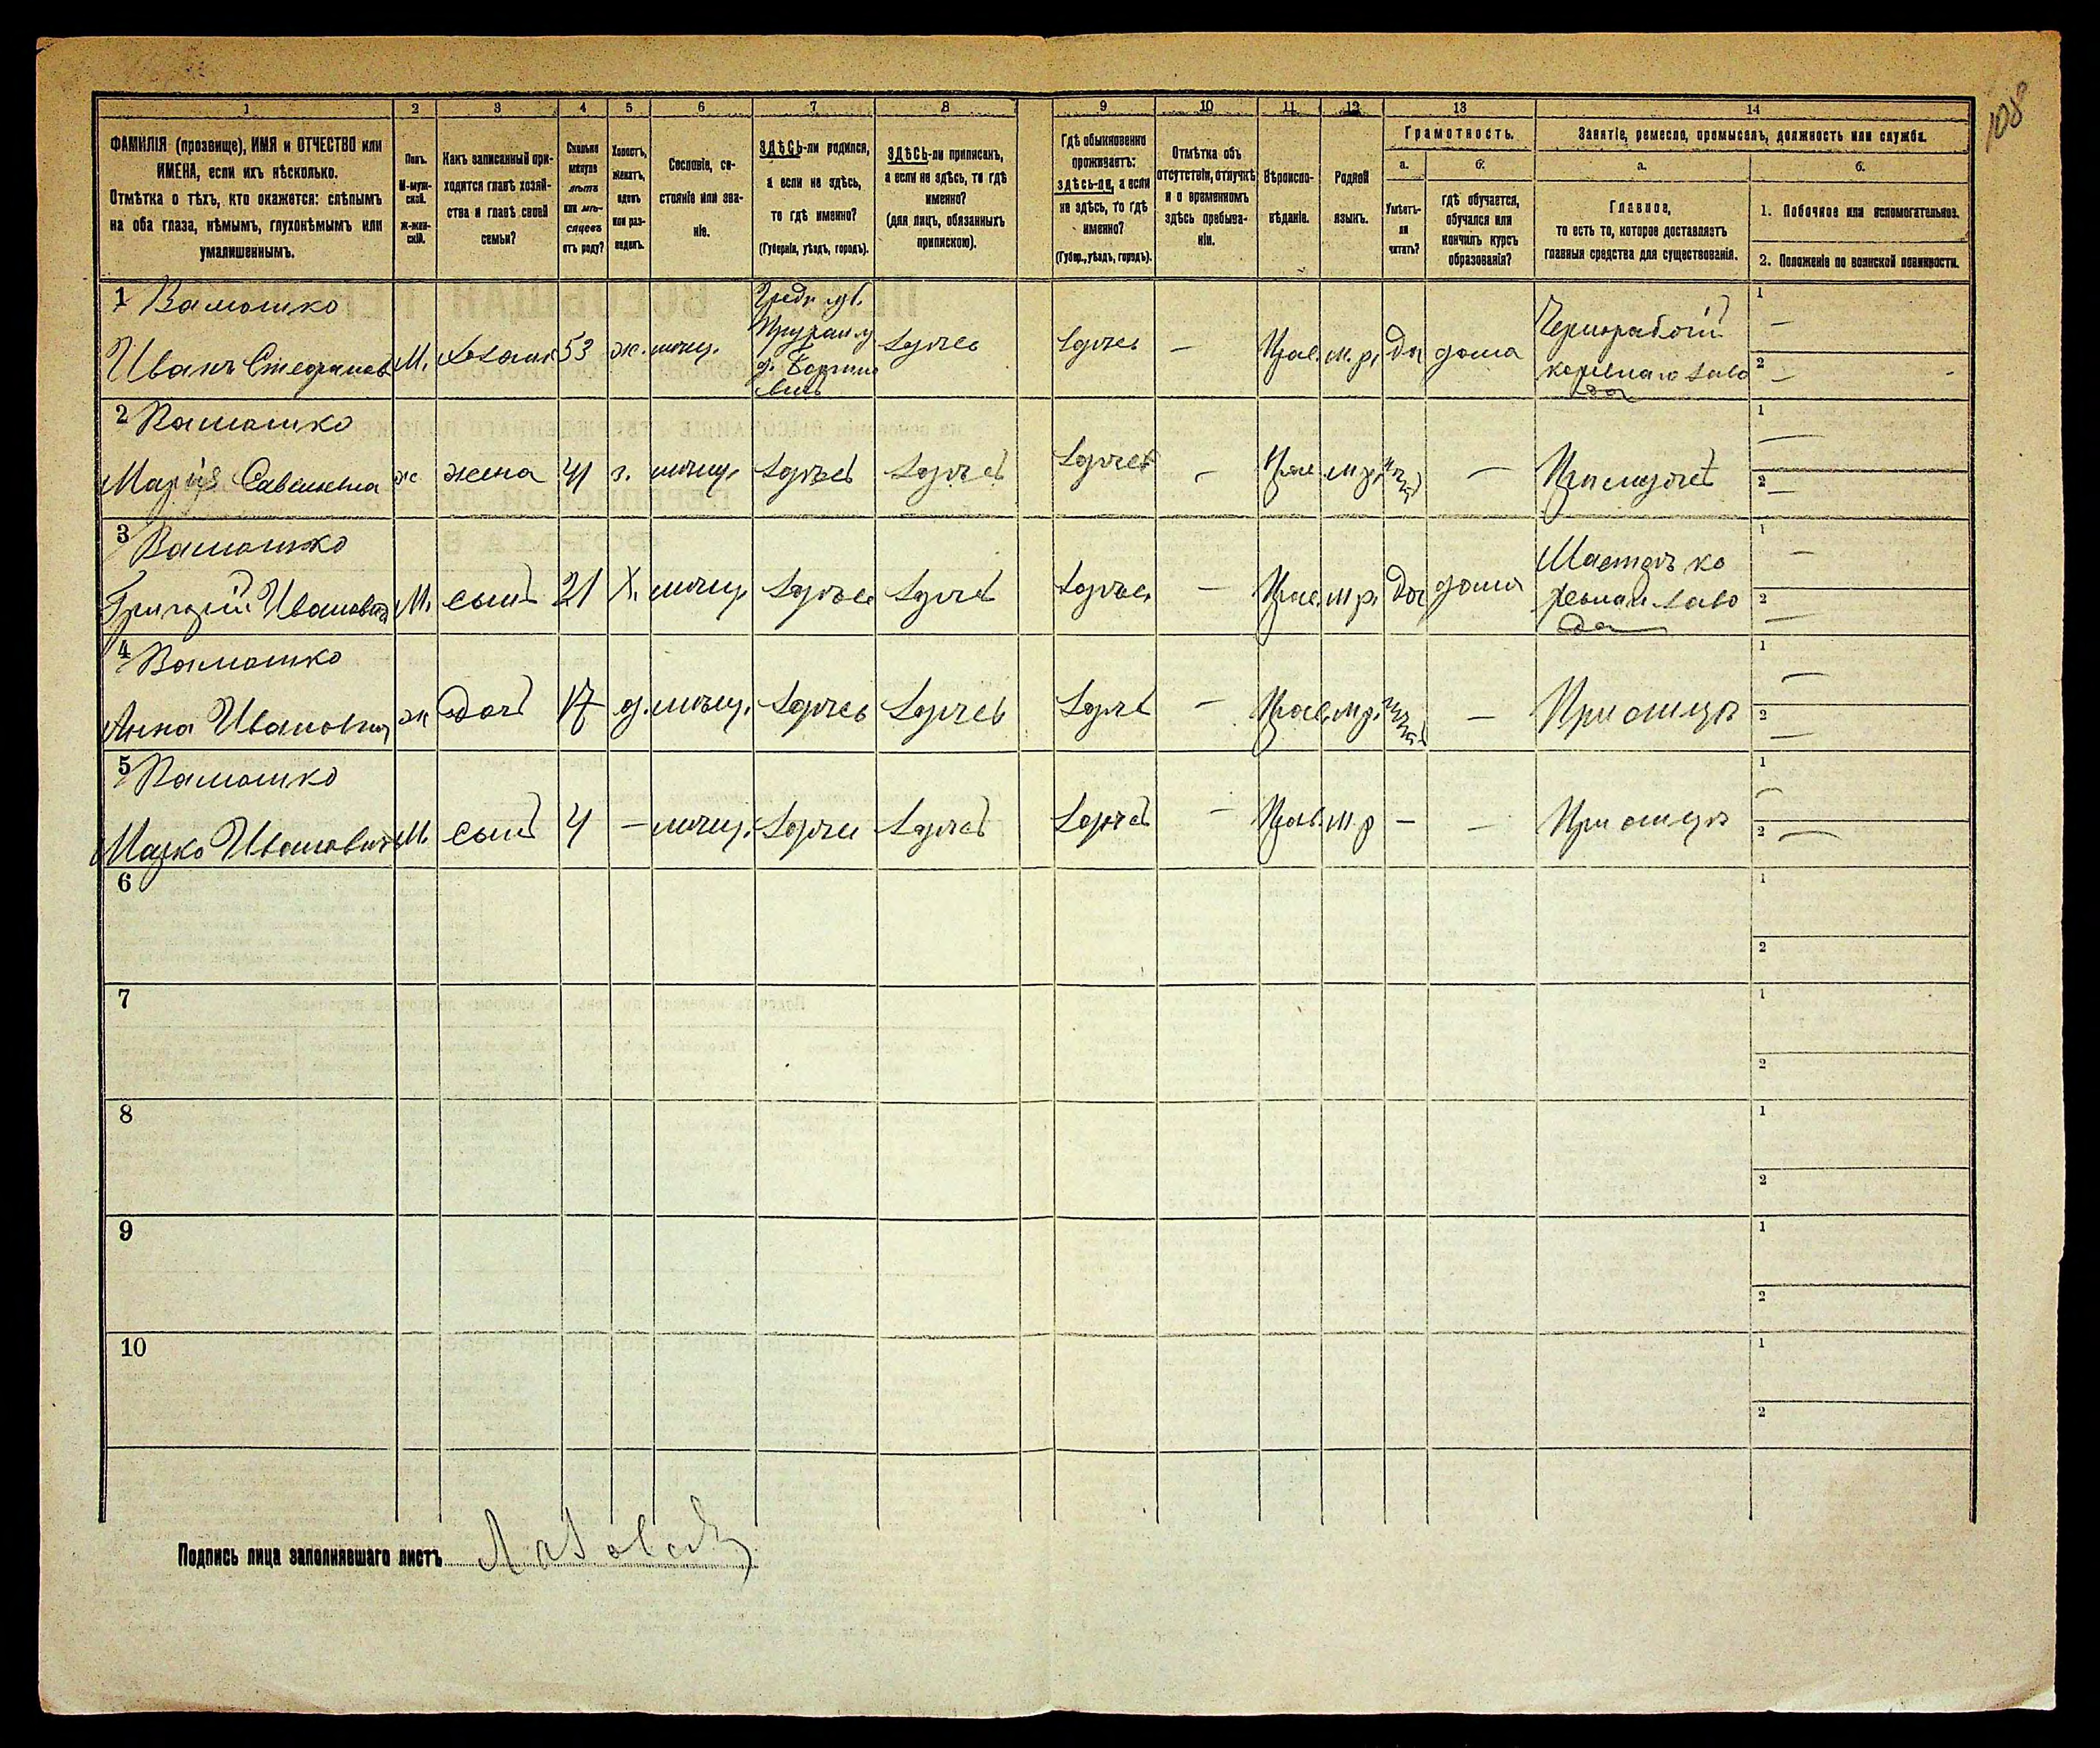 108
1 2 3 4 5 6 7 8 9 10 11 12 13 14
ФАМИЛІЯ (прозвище), ИМЯ и ОТЧЕСТВО или
ИМЕНА, если ихъ нѣсколько.
Отмѣтка о тѣхъ, кто окажется: слѣпымъ
на оба глаза, нѣмымъ, глухонѣмымъ или
умалишеннымъ.
Полъ.
М-муж-
ской.
Ж-жен-
скій.
Какъ записанный при-
ходится главѣ хозяй-
ства и главѣ своей
семьи?
Сколько
минуло
лѣтъ
или мѣ-
сяцевъ
отъ роду?
Холостъ,
женатъ,
вдовъ
или раз-
веденъ.
Сословіе, со-
стояніе или зва-
ніе.
ЗДѢСЬ-ли родился,
а если не здѣсь,
то гдѣ именно?
(Губернія, уѣздъ, городъ).
ЗДѢСЬ-ли приписанъ,
а если не здѣсь, то гдѣ
именно?
(для лицъ, обязанныхъ
припискою).
Гдѣ обыкновенно
проживаетъ:
здѣсь-ли, а если
не здѣсь, то гдѣ
именно?
(Губер., уѣздъ, городъ).
Отмѣтка объ
отсутствіи, отлучкѣ
и о временномъ
здѣсь пребыва-
ніи.
Вѣроиспо-
вѣданіе.
Родной
языкъ.
Грамотность.
а.
Умѣетъ-
ли
читать?
б.
гдѣ обучается,
обучался или
кончилъ курсъ
образованія?
Занятіе, ремесло, промыселъ, должность или служба.
а.
Главное,
то есть то, которое доставляетъ
главныя средства для существованія.
б.
1. Побочное или вспомогательное.
2. Положеніе по воинской повинности.
1 Вамошко
Иванъ Стефанов М. хозяин 53 ж. мѣщ.
Гродн. губ.
здѣсь здѣсь — Прав. м.р. Да дома
Чернорабочій
кафельнаго заво
да
1 —
2 —
2 Вамошко
Марія Савельевна ж жена 41 з. мѣщ. здѣсь здѣсь здѣсь — Прав м.р. — При мужѣ
1 —
2 —
3 Вамошко
Григорій Ивановичъ М. сынъ 21 Х. мѣщ. здѣсь здѣсь здѣсь — Прав. м.р. Да дома
Мастеръ ка
фельнаго заво
да
1 —
2 —
4 Вамошко
Анна Ивановна ж дочь 17 д. мѣщ. здѣсь здѣсь здѣсь — Прав. м.р. — При отцѣ
1 —
2 —
5 Вамошко
Марко Ивановичъ М. сынъ 4 — мѣщ. здѣсь здѣсь здѣсь — Прав. м.р — — При отцѣ
1 —
2 —
6 1
2
7 1
2
8 1
2
9 1
2
10 1
2
Подпись лица заполнявшаго листъ